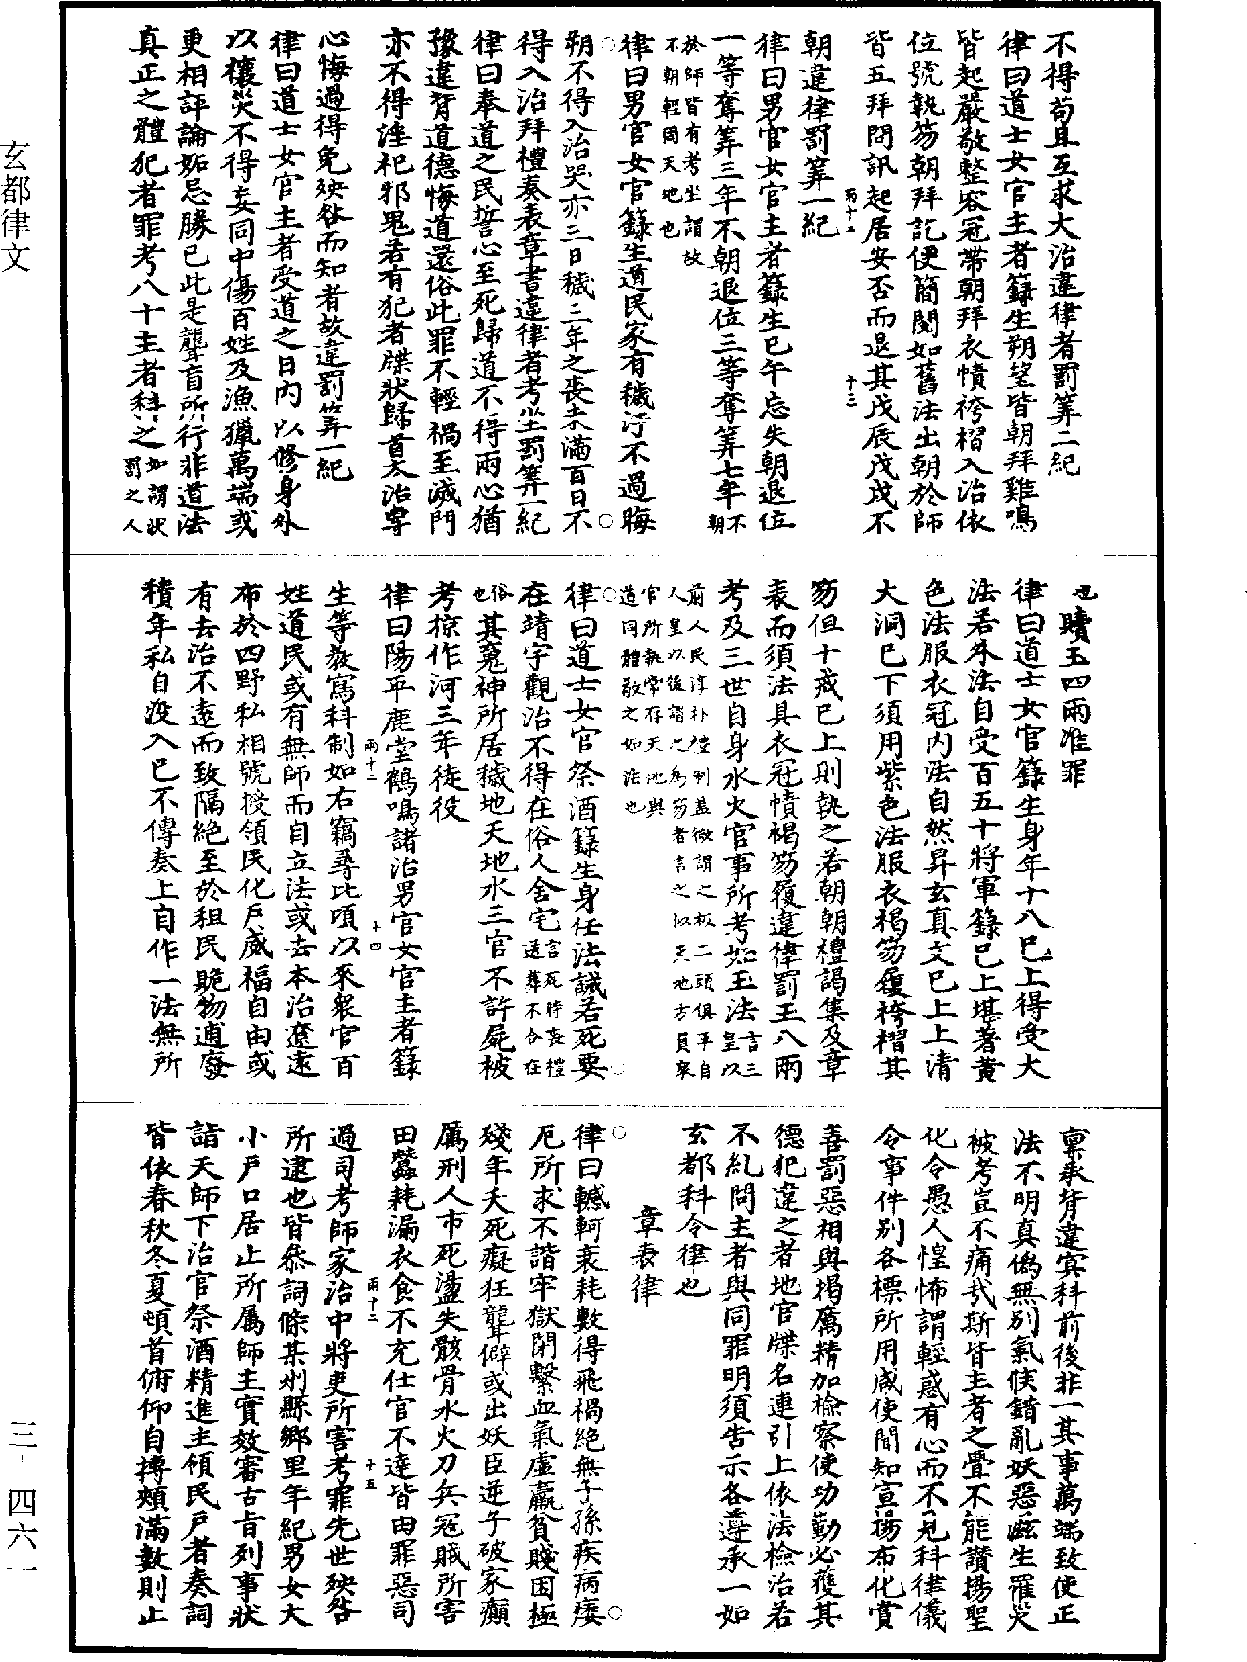 不得苟且互求大治違律者罰筭二紀
律曰道士女官主者籙生朔望皆朝拜雞鳴
皆起嚴敬整容冠帶朝拜衣幘袴褶入治依
位號執笏朝拜訖便簡閱如舊法出朝於師
皆五拜問訊起居安否而退其戊辰戊戌不
朝違律罰筭一紀
律曰男官女官主者籙生已午忘失朝退位
一等奪筭三年不朝退位三等奪筭七年不朝
於師皆有考坐謂故
不朝輕圖天地也
律曰男官女官籙生道民家有穢汙不過晦
朔不得入治哭亦三日穢三年之喪未滿百日不
得入治拜禮奏表章書違律者考坐罰筭一紀
律曰奉道之民誓心至死歸道不得兩心猶
豫違背道德悔道還俗此罪不輕禍至滅門
亦不得淫祀邪鬼若有犯者牒狀歸首太治專
心悔過得免殃咎而知者故違罰筭一紀
律曰道士女官主者受道之日內以修身外
以禳災不得妄同中傷百姓及漁獵萬端或
更相評論妬忌勝己此是聾盲所行非道法
真正之體犯者罪考八十主者科之如謂狀
罰之人
也贖玉四兩准罪
律曰道士女官籙生身年十八已上得受大
法若外法自受百五十將軍籙已上堪著黃
色法服衣冠內法自然昇玄真文已上上清
大洞已下須用紫色法服衣褐笏履袴褶其
笏但十戒已上則執之若朝朝禮謁集及章
表而須法具衣冠幘褐笏履違律罰玉八兩
考及三世自身水火官事所考如玉法言三
皇以
前人民淳朴禮制蓋微謂之板二頭俱平自
人皇以後謂之為笏者言之似天地方員眾
官所執常存天地與
道同體敬之如法也
律曰道士女官祭酒籙生身任法誡若死要
在靖宇觀治不得在俗人舍宅言死時喪禮
送葬不合在
俗
也其寃神所居穢地天地水三官不許屍被
考掠作河三年徒役
律曰陽平鹿堂鶴鳴諸治男官女官主者籙
生等教寫科制如右竊尋比頃以來眾官百
姓道民或有無師而自立法或去本治遼遠
布於四野私相號授領民化戶威福自由或
有去治不遠而致隔絕至於租民賧物逋廢
積年私自沒入已不傳奏上自作一法無所
稟承背違冥科前後非一其事萬端致使正
法不明真偽無別氣候錯亂妖惡滋生罹災
被考豈不痛哉斯皆主者之舋不能讚揚聖
化令愚人惶怖謂輕惑有心而不見科律儀
令事件別各標所用咸使聞知宣揚布化賞
善罰惡相與揭厲精加檢察使功勤必獲其
德犯違之者地官牒名連引上依法檢治若
不糺問主者與同罪明須告示各遵承一如
玄都科令律也
章表律
律曰轗軻衰耗數得飛禍絕無子孫疾病痿
厄所求不諧牢獄閉繫血氣虛羸貧賤困極
殘年夭死癡狂聾僻或出妖臣逆子破家癩
厲刑人市死盪失骸骨水火刀兵冠賊所害
田蠶耗漏衣食不充仕官不達皆由罪惡司
過司考師家治中將吏所害考罪先世殃咎
所逮也皆叅詞條某州縣鄉里年紀男女大
小戶口居止所屬師主實效審古㫖列事狀
詣天師下治官祭酒精進主領民戶者奏詞
皆依春秋冬夏頓首俯仰自摶頰滿數則止
玄都律文
三-四六一